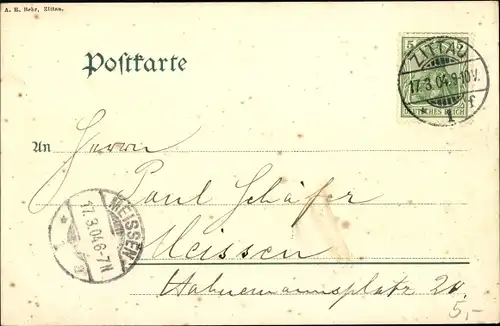 A. E. Behr, Zittau.
Postkarte
5
DEUTSCHES REICH
ZITTAU
17.3.04.9-10V.
* 1 f
An Herrn
Paul Schäfer
Meissen
Hahnemannsplatz 20.
MEISSEN
17.3.04.6-7N
* 1
5,-